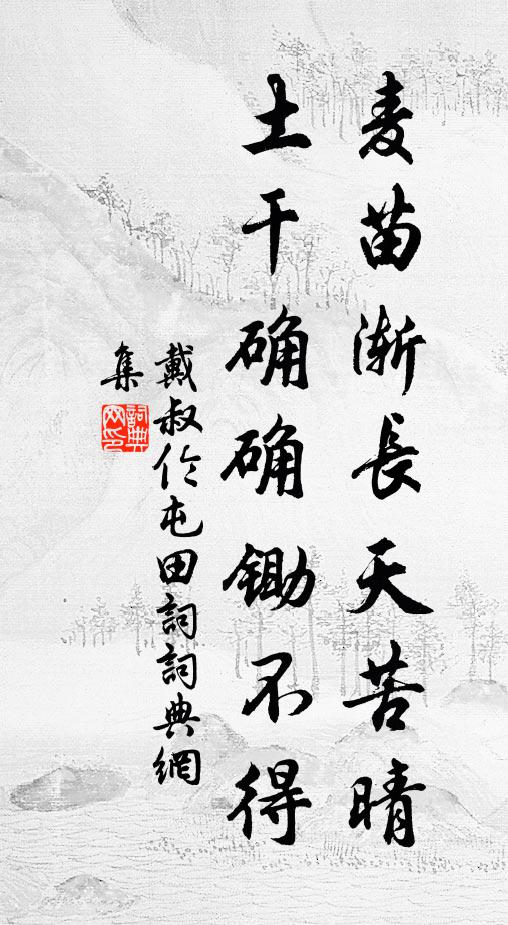 麦苗渐長天苦晴
土干确确锄不得
戴叔伦屯田詞詞典網
集
詞典
网印